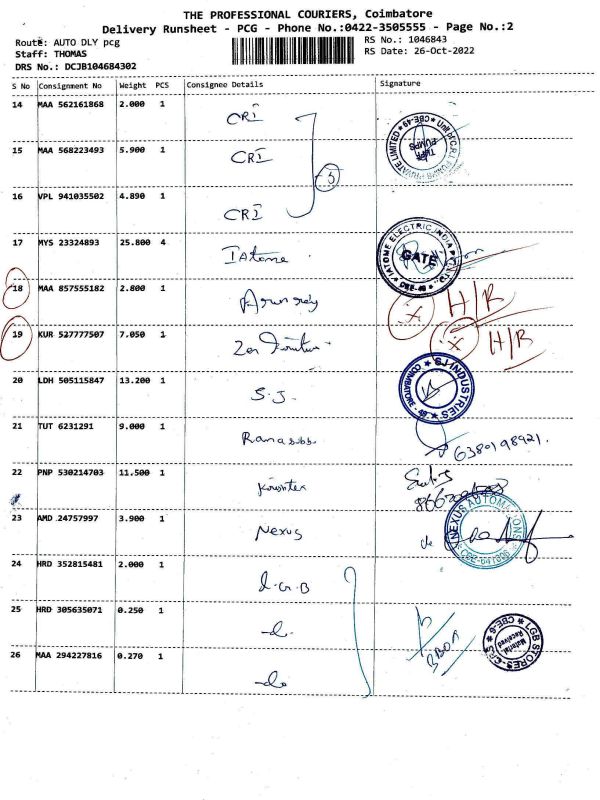 THE PROFESSIONAL COURIERS, Coimbatore
Delivery Runsheet - PCG - Phone No.:0422-3505555 - Page No.:2
Route: AUTO DLY pcg
RS No.: 1046843
Staff: THOMAS
RS Date: 26-Oct-2022
DRS No.: DCJB104684302
S No Consignment No Weight PCS Consignee Details Signature
14 MAA 562161868 2.000 1 CRI
15 MAA 568223493 5.900 1 CRI
5
16 VPL 941035502 4.890 1 CRI
17 MYS 23324893 25.800 4 IAtome GATE
18 MAA 857555182 2.800 1 x H/R
19 KUR 527777507 7.050 1 x H/R
20 LDH 505115847 13.200 1 S.J. SJ INDUSTRIES COIMBATORE
21 TUT 6231291 9.000 1 6380198921.
22 PNP 530214703 11.500 1
23 AMD 24757997 3.900 1 Nexus NEXUS AUTOMATIONS
24 HRD 352815481 2.000 1 L.G.B
25 HRD 305635071 0.250 1 -do.
LGB STORES Material Received
26 MAA 294227816 0.270 1 -do